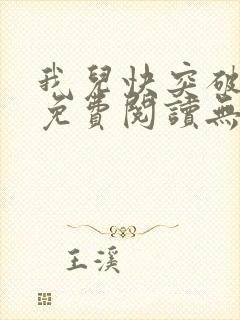 我兒快突破
免費閱讀無
王溪